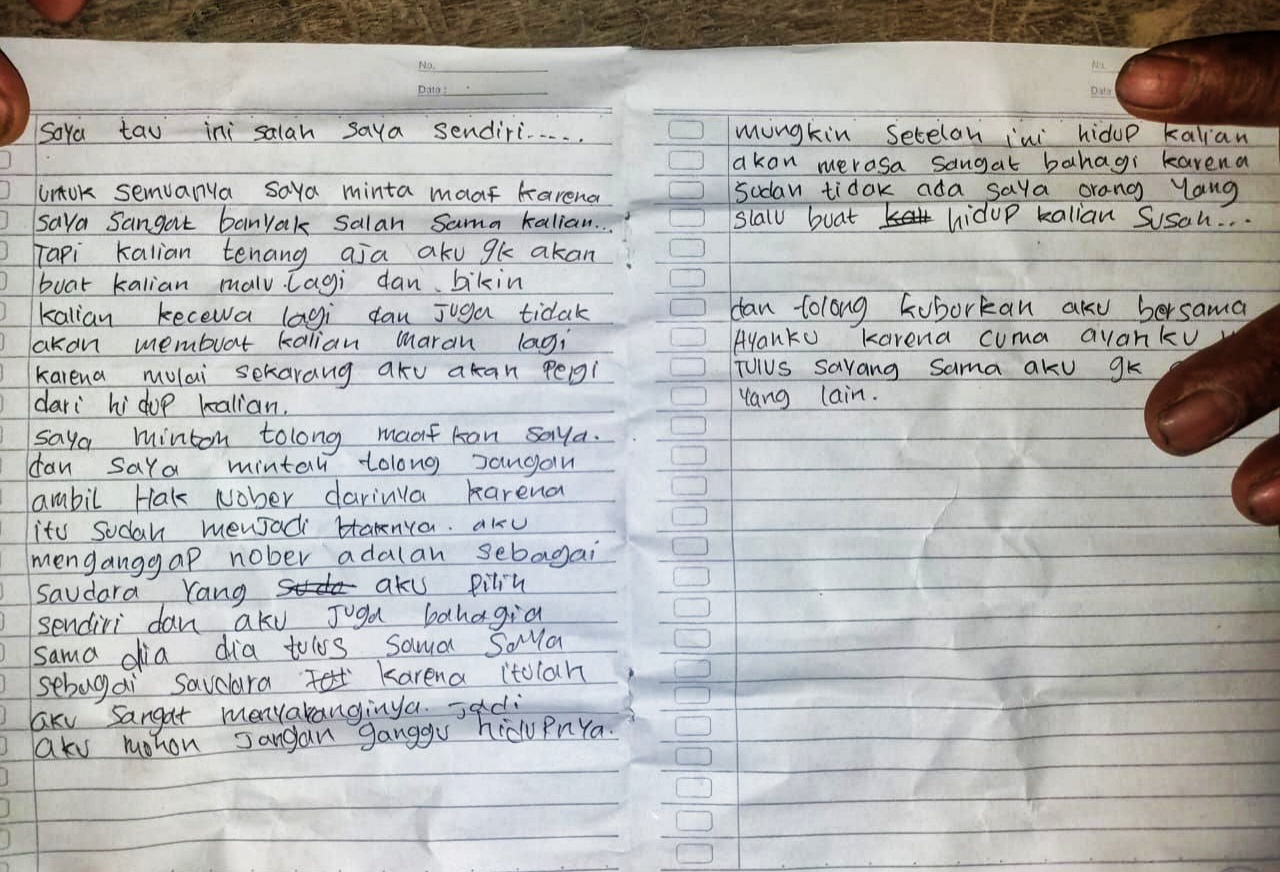 No.
Date:
saya tau ini salah saya sendiri.....
untuk semuanya saya minta maaf karena
saya sangat banyak salah sama kalian...
Tapi kalian tenang aja aku gk akan
buat kalian malu lagi dan bikin
kalian kecewa lagi dan juga tidak
akan membuat kalian marah lagi
karena mulai sekarang aku akan pergi
dari hidup kalian.
saya mintah tolong maaf kan saya.
dan saya mintah tolong jangan
ambil Hak Nober darinya karena
itu sudah menjadi Haknya. aku
menganggap nober adalah sebagai
saudara yang aku pilih
sendiri dan aku juga bahagia
sama dia dia tulus sama saya
sebagai saudara karena itulah
aku sangat menyayanginya. jadi
aku mohon jangan ganggu hidupnya.
No.
Date
mungkin setelah ini hidup kalian
akan merasa sangat bahagi karena
sudah tidak ada saya orang yang
slalu buat hidup kalian susah...
dan tolong kuburkan aku bersama
Ayahku karena cuma ayahku
Tulus sayang sama aku gk
yang lain.